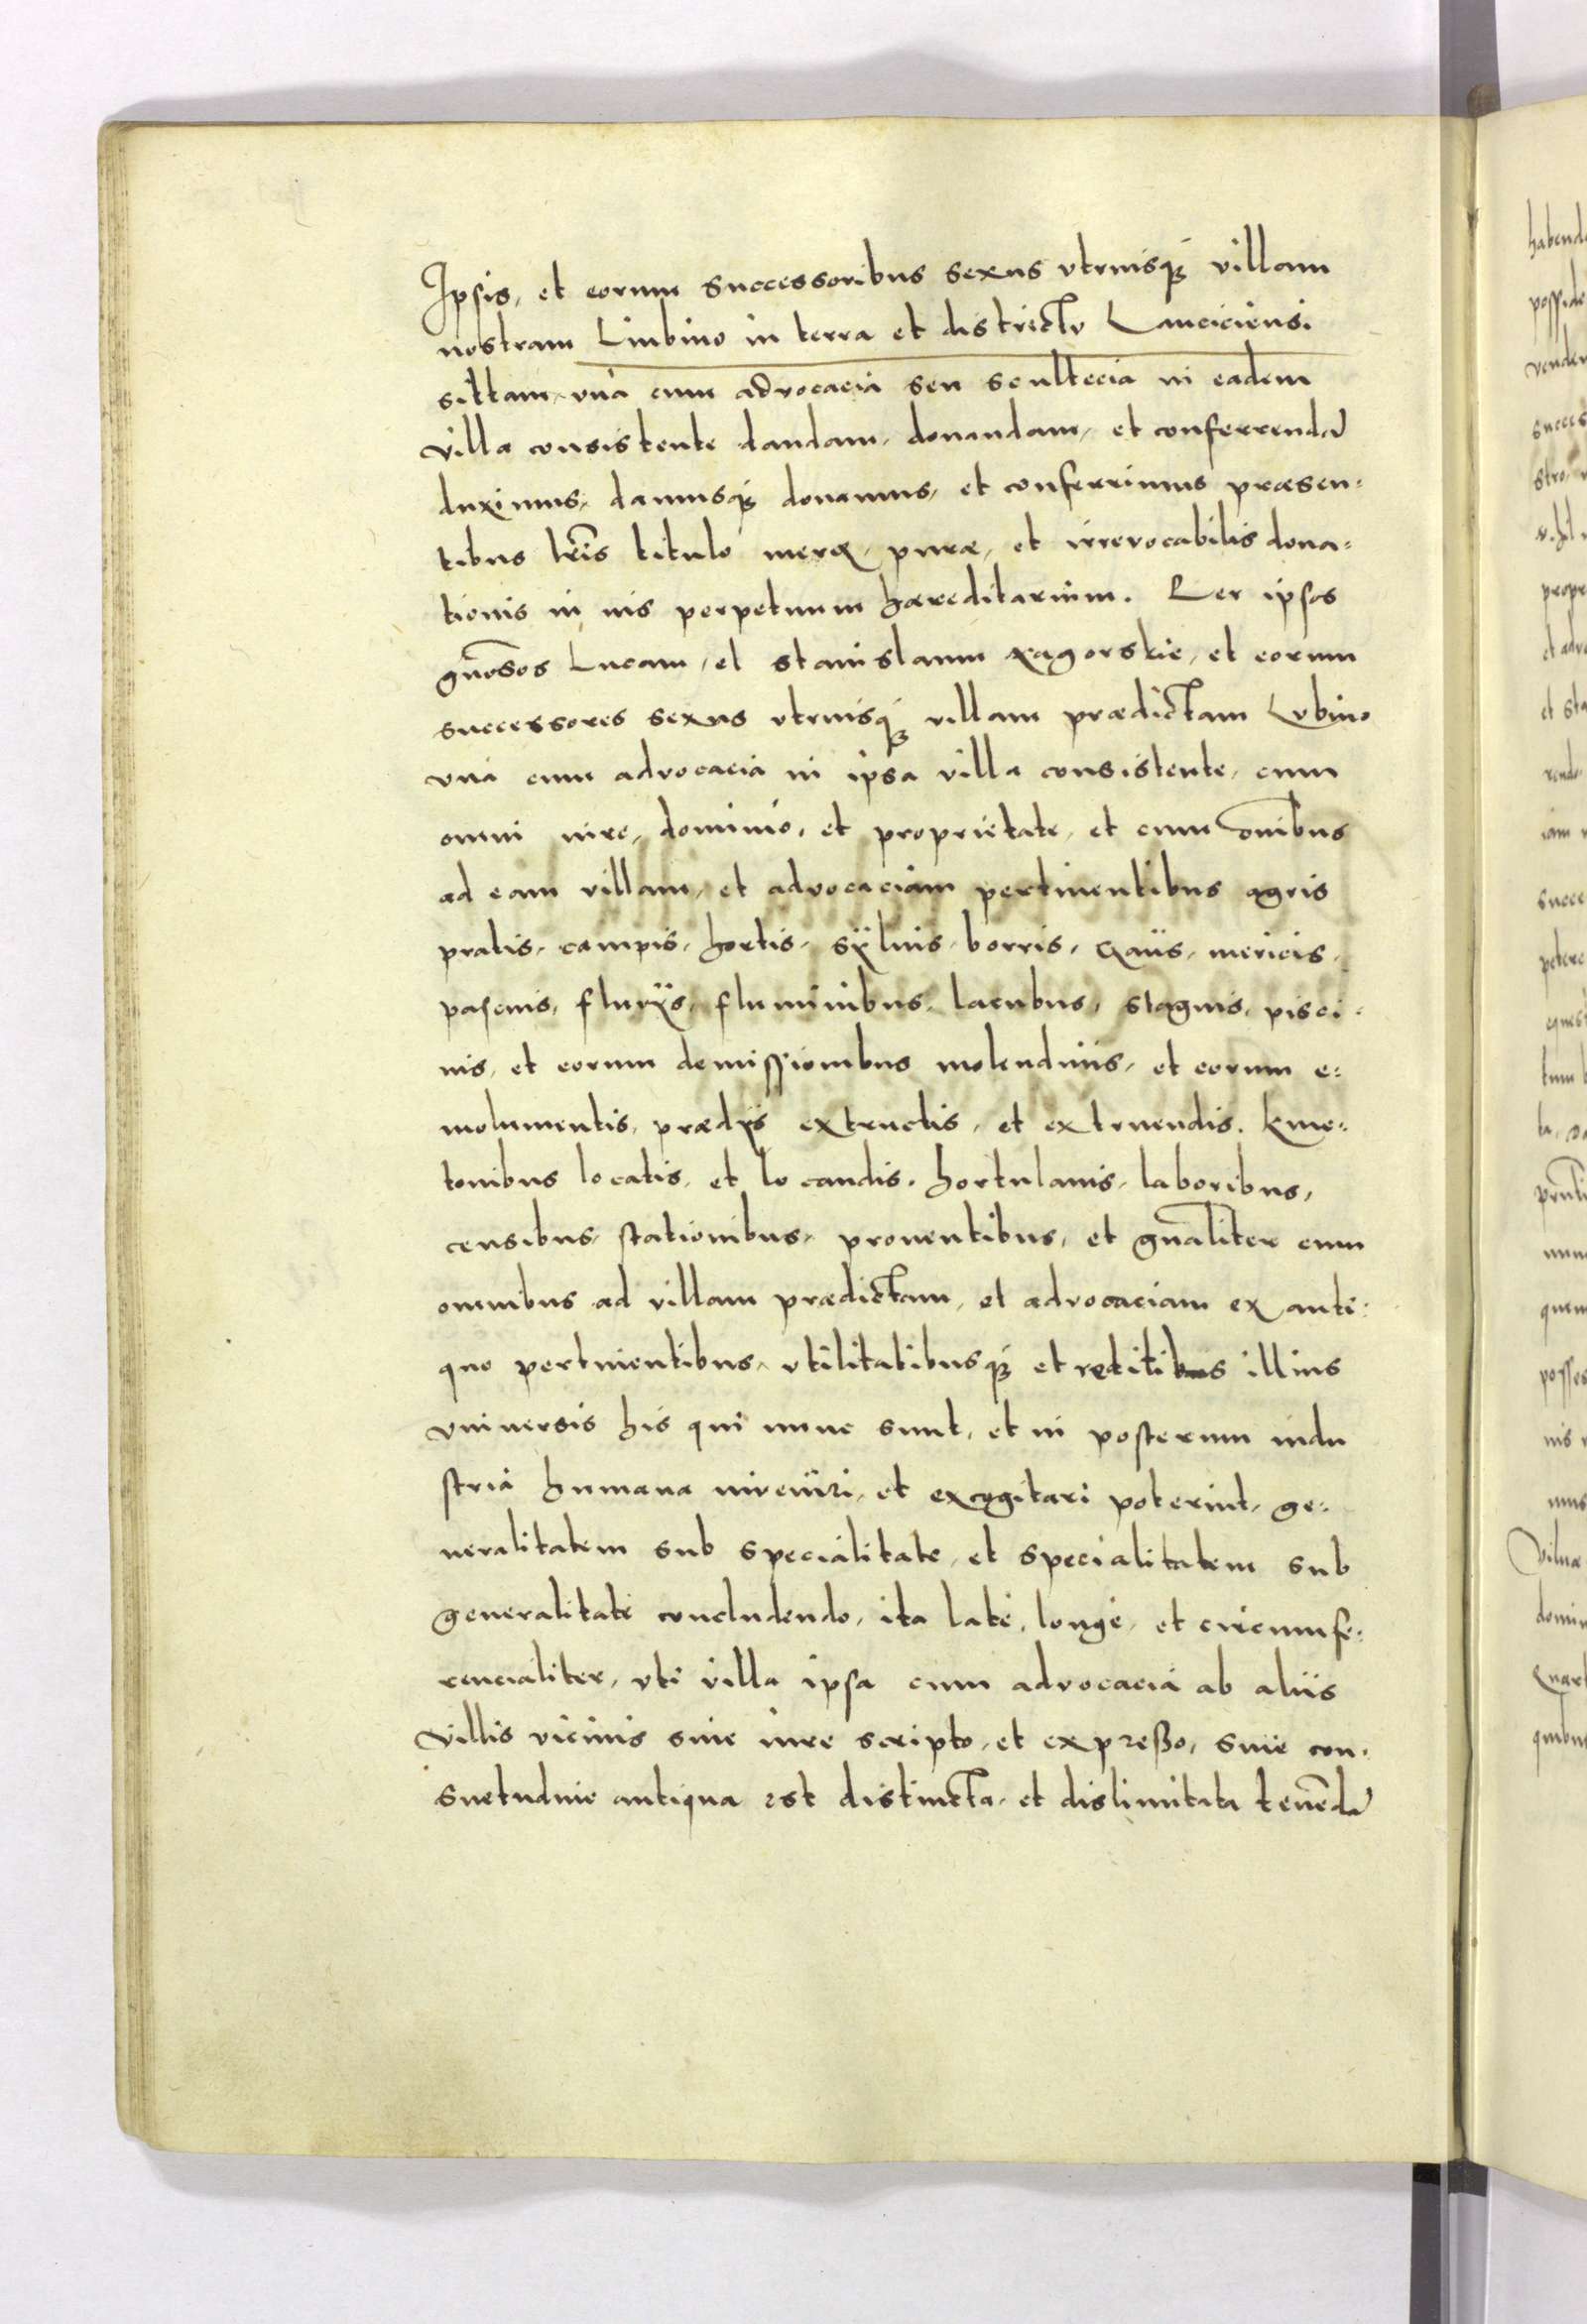 Ipsis, et eorum successoribus sexus vtriusq; villam
nostram Liubino in terra et districtv Lanciciensi
sittam, vnà cum advocacia seu scultecia in eadem
villa consistente dandam, donandam, et conferrendã
duximus, damusq; donamus, et conferrimus præsen:
tibus lris titulo meræ, puræ, et irrevocabilis dona:
tionis in uis perpetuum hæreditarium. Per ipsos
gnosos Lucam, et stanislaum zagorskie, et eorum
successores sexus vtriusq; villam prædictam Lvbino
vnà cum advocacia in ipsa villa consistente, cum
omni iure, dominio, et proprietate, et cum onibus
ad eam villam, et advocaciam pertinentibus agris
pratis, campis, hortis, sÿluis, borris, gaiis, mericis,
pascuis, fluvÿs, fluminibus, lacubus, stagnis, pisci:
nis, et eorum demissionibus molendinis, et eorum e:
molumentis, prædÿs extructis, et extruendis. kme:
tonibus locatis, et locandis, hortulanis, laboribus,
censibus, stationibus, prouentibus, et gnaliter cum
omnibus ad villam prædictam, et advocaciam ex anti:
quo pertinentibus, vtilitatibusq; et reditibus illius
vniuersis his qui nunc sunt, et in posterum indu
stria humana inveniri, et excogitari poterint, ge:
neralitatem sub specialitate, et specialitatem sub
generalitate concludendo, ita latè, longè, et circumfe:
rencialiter, vti villa ipsa cum advocacia ab aliis
villis vicinis siue iure scripto, et expreßo, siue con:
suetudine antiqua est distincta, et dislimitata tenẽdã